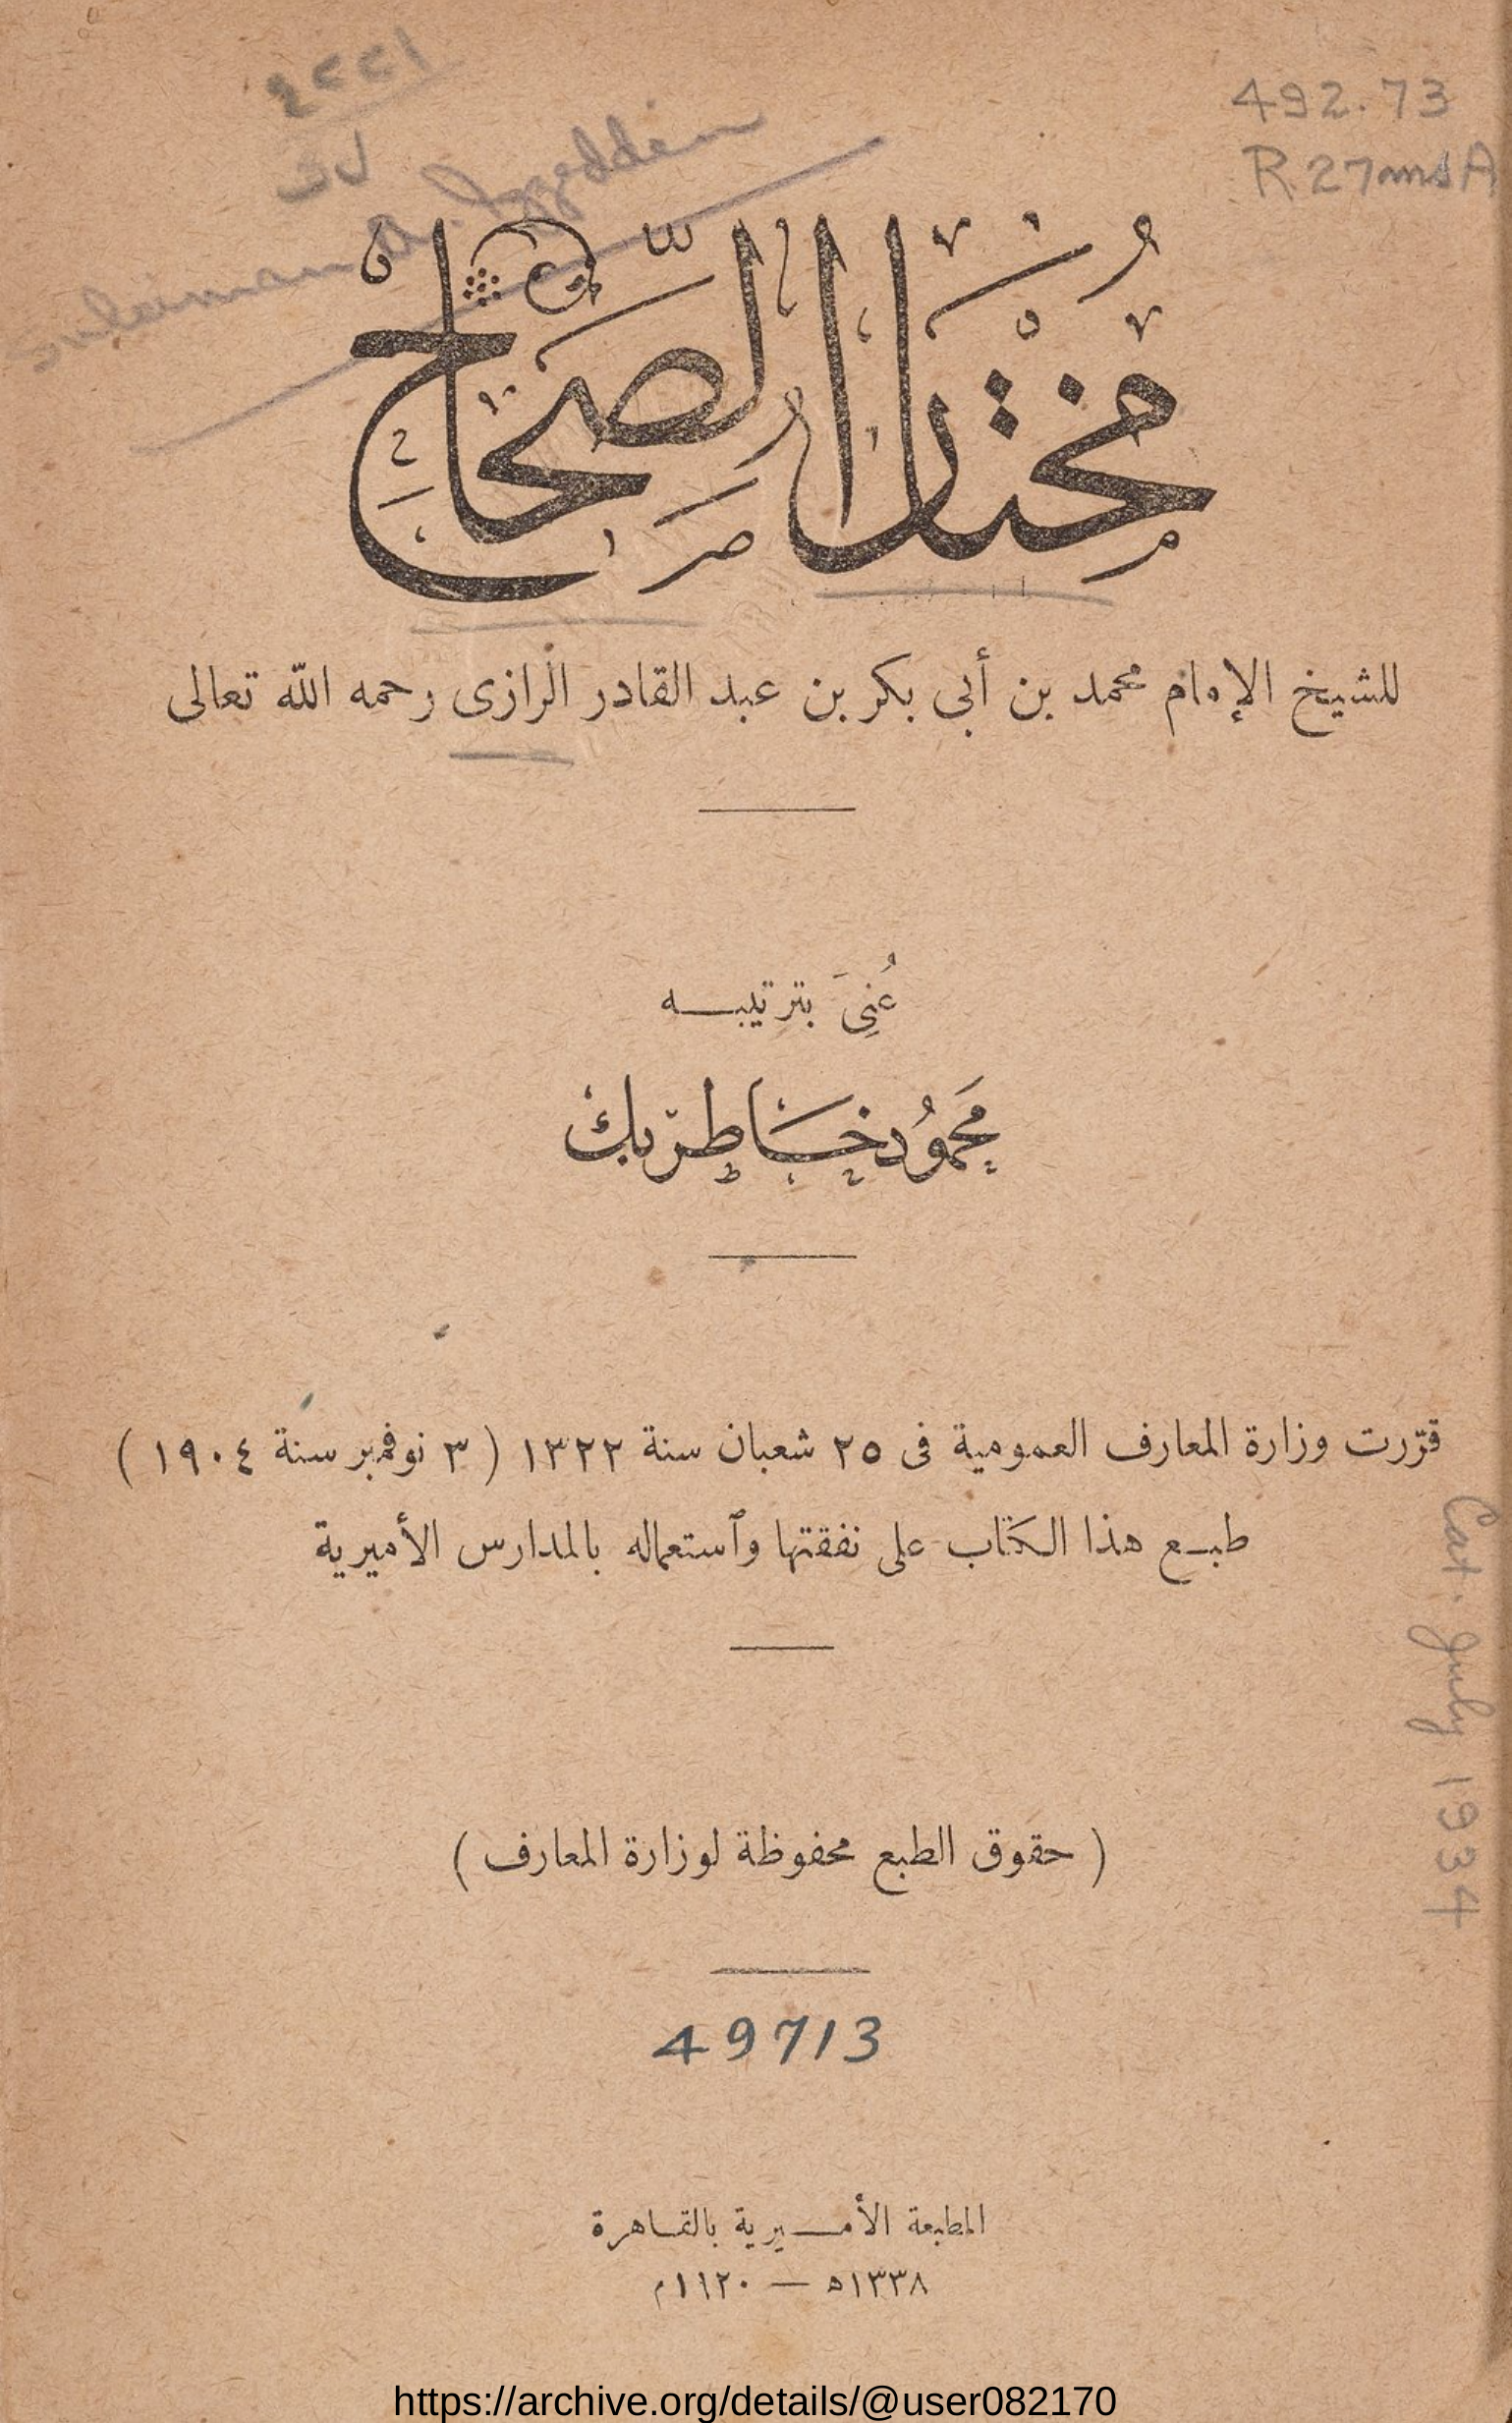 492.73
R27msA
Sulaiman A. Izzeddin
مُختار الصّحاح
للشيخ الإمام محمد بن أبى بكر بن عبد القادر الرازى رحمه الله تعالى
عُنِىَ بترتيبه
مَحمُود خَاطر بك
قرّرت وزارة المعارف العمومية فى ٢٥ شعبان سنة ١٣٢٢ ( ٣ نوفمبر سنة ١٩٠٤ )
طبع هذا الكتاب على نفقتها وٱستعماله بالمدارس الأميرية
Cat. July 1934
( حقوق الطبع محفوظة لوزارة المعارف )
49713
المطبعة الأميرية بالقاهرة
١٣٣٨ه — ١٩٢٠م
https://archive.org/details/@user082170